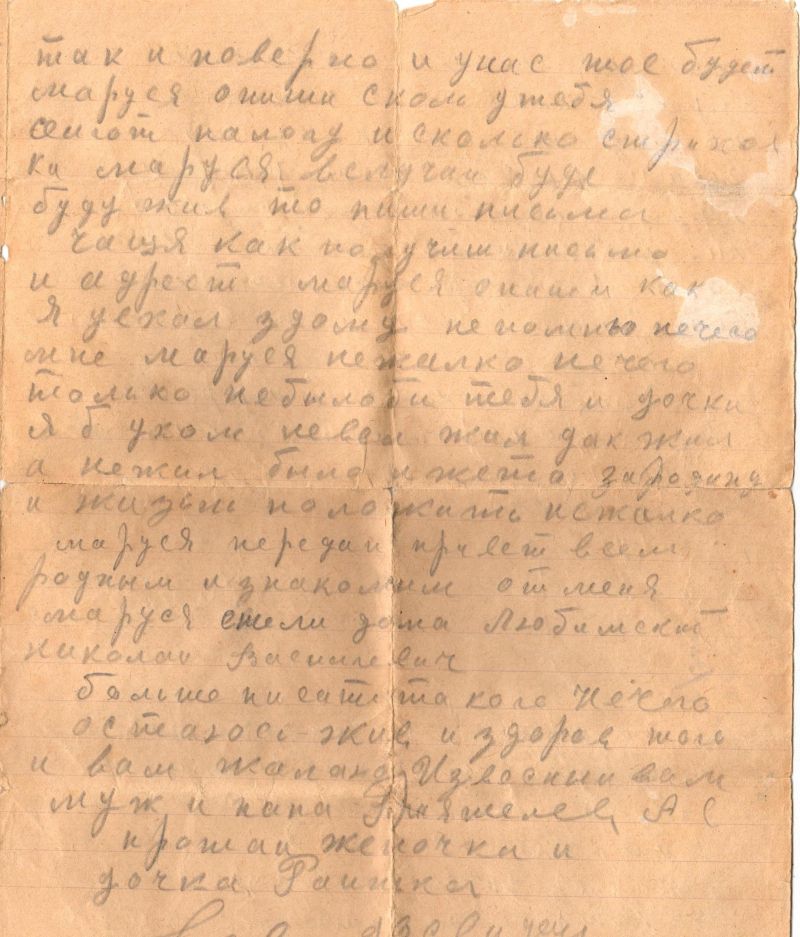 так и наверно и унас тое будет
маруся опиши сколь утебя
налогу и сколько страхов
ки маруся вслучаи буде
буду жив то пиши письма
чащя как получиш письмо
и адрест маруся опиши как
я уехал здому непомню нечего
мне маруся нежалко нечего
только небылоби тебя и дочки
я б жил дак жил
а нежил было зародину
и жизнь положить нежалко
маруся передай привет всем
родным и знакомим от меня
маруся если дома Любимский
николай Василевич
больше писать такого Нечего
остаюсь жив и здоров того
и вам жалаю Извесный вам
муж и папа А С
прощай женочка и
дочка Раичка